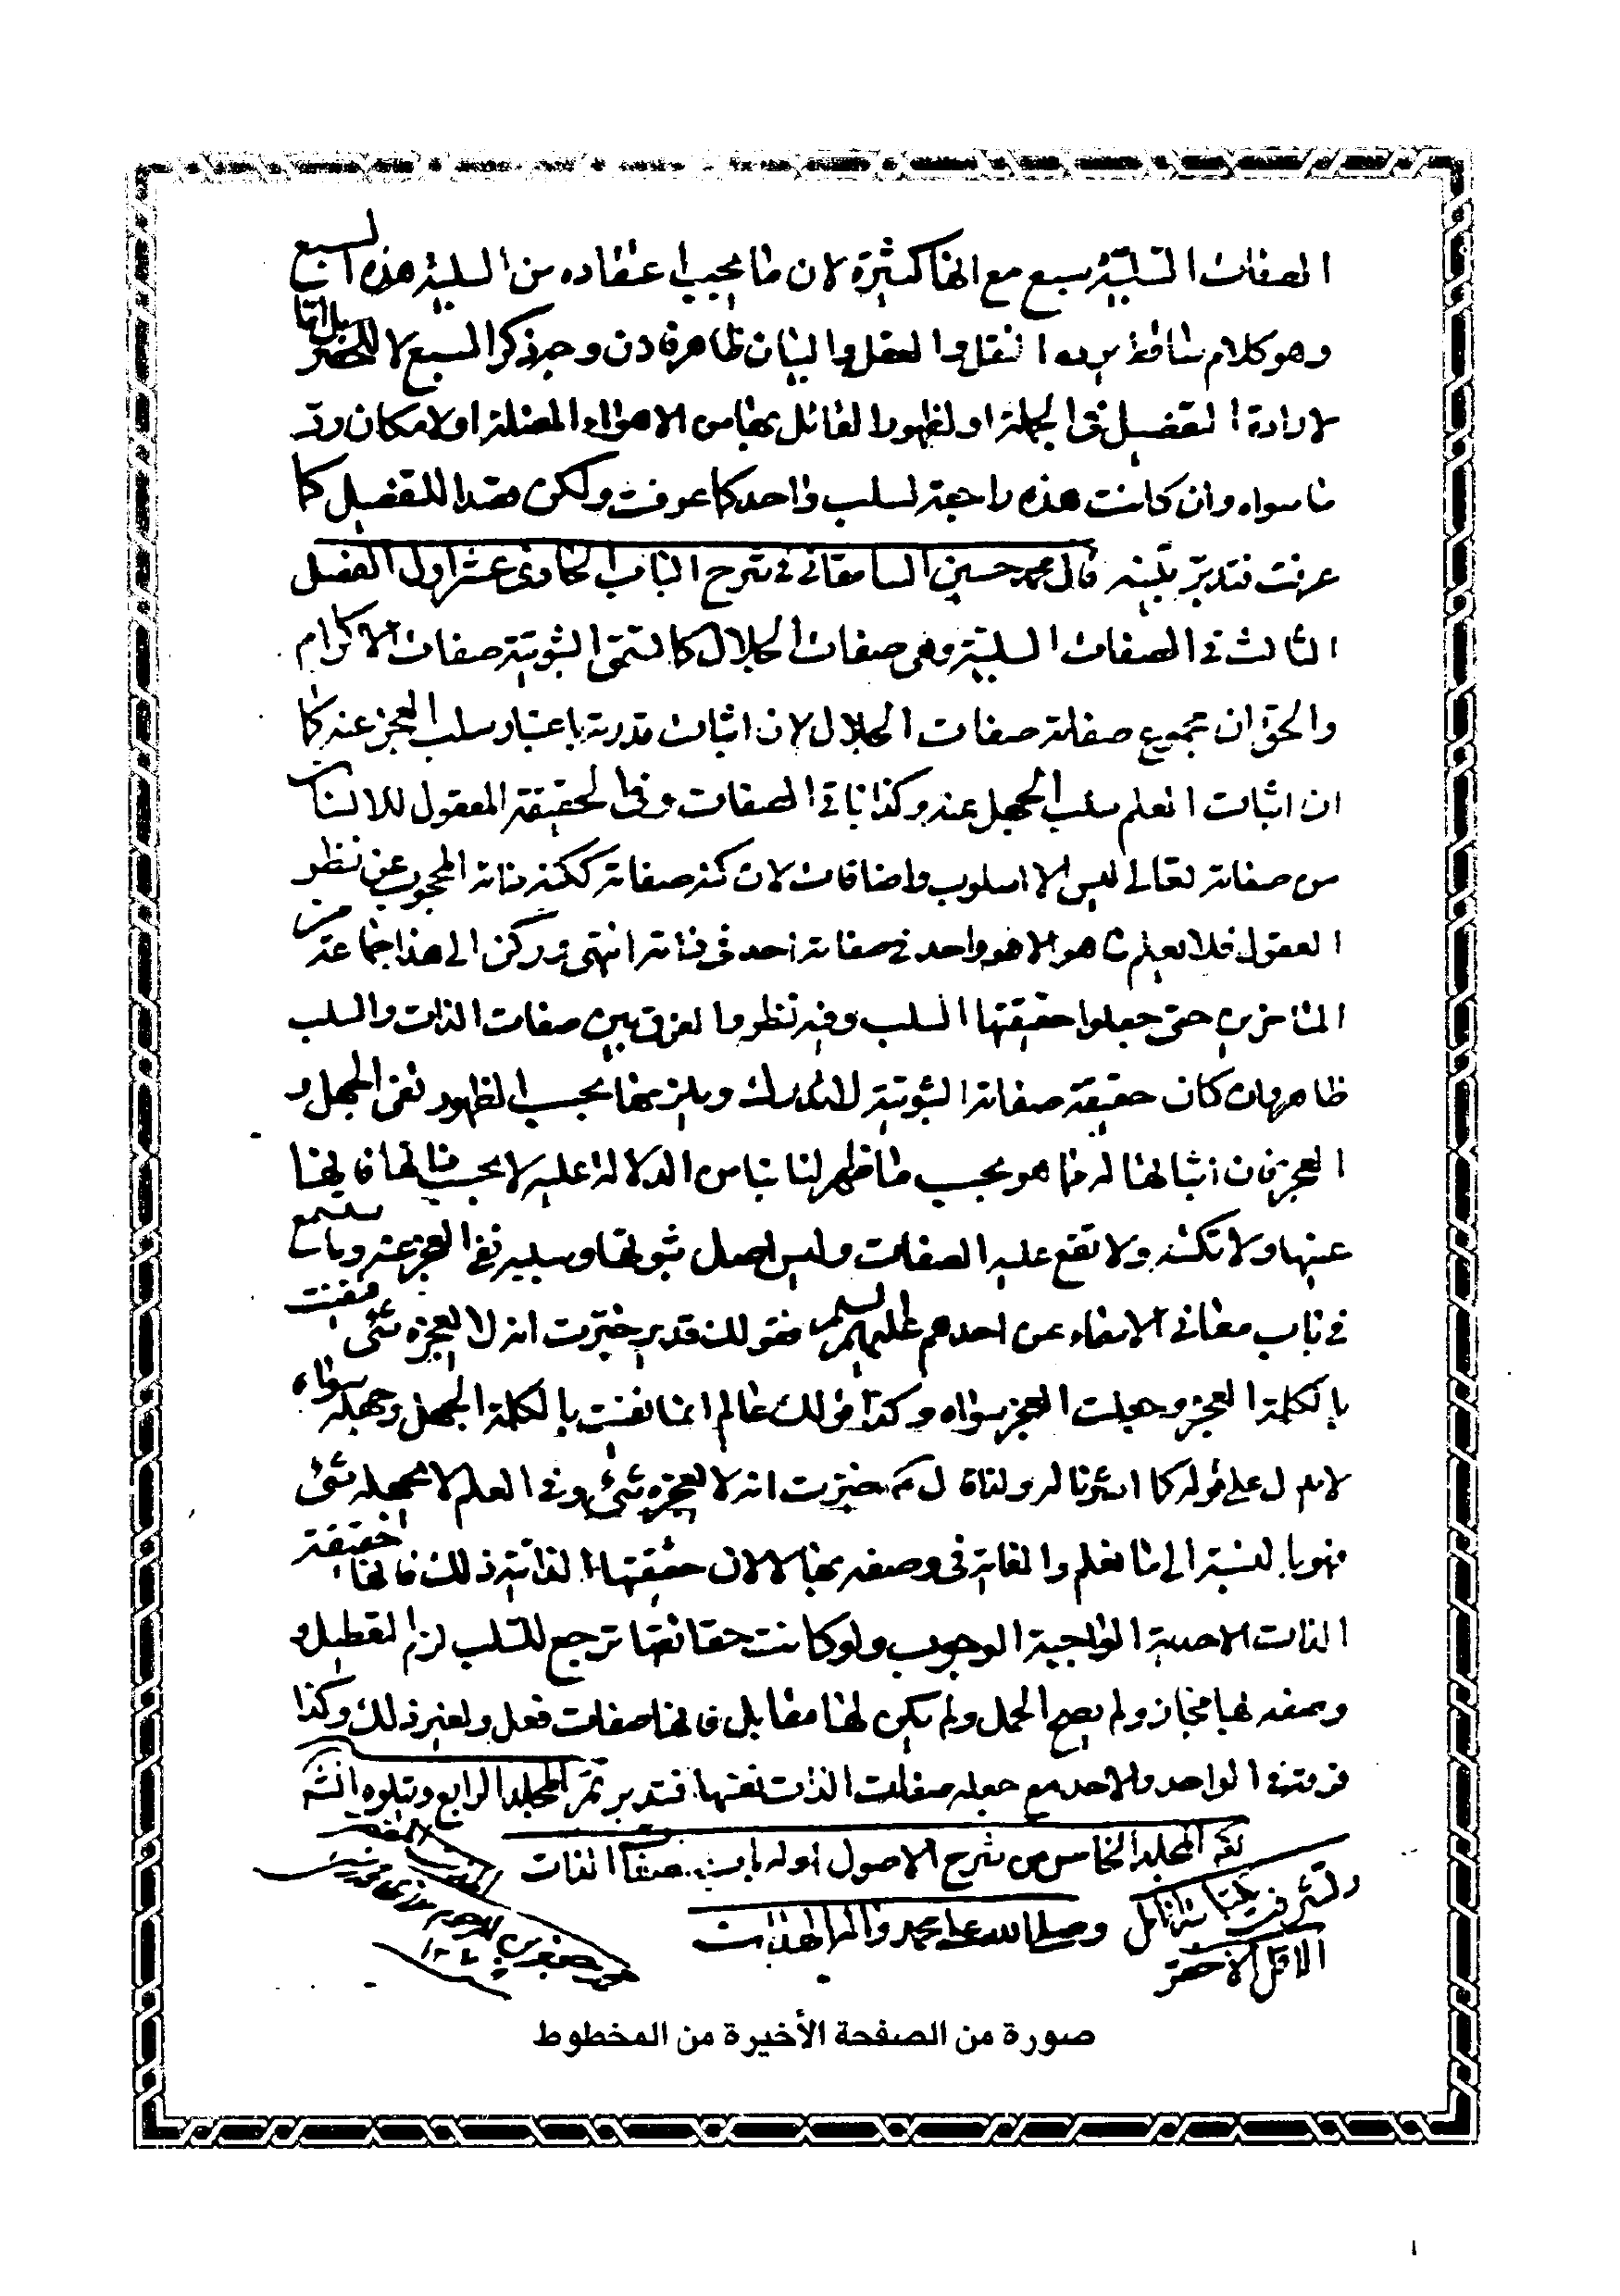 الصفات السلبية سبع مع انها كثيرة لان ما يجب اعتقاده من السلبية هذه السبع
وهو كلام ساقط يرده النقل والعقل والبيان ظاهرة دن وجه ذكر السبع لا للحصر بل اما
لارادة التفضيل في الجملة او لظهور القائل بها من الاهواء المضلة او لامكان رد
ما سواه وان كانت هذه راجعة لسلب واحد كما عرفت ولكن قصدا للتفضيل كما
عرفت فتدبر تنبيه قال محمد حسين السامقاني في شرح الباب الحادي عشر اول الفصل
الثالث في الصفات السلبية وهي صفات الجلال كما تسمى الثبوتية صفات الاكرام
والحق ان مجموع صفاته صفات الجلال لان اثبات قدرته باعتبار سلب العجز عنه كما
ان اثبات العلم سلب الجهل عنه وكذا باقي الصفات وفي الحقيقة المعقول للانسان
من صفاته تعالى ليس الا السلوب واضافات لان كنه صفاته ككنه ذاته المحجوب عن نظر
العقول فلا يعلم ما هو الا هو واحد في صفاته احد في ذاته انتهى وركن الى هذا جماعة من
المتاخرين حتى جعلوا حقيقتها السلب وفيه نظر والفرق بين صفات الذات والسلب
ظاهر وان كان حقيقة صفاته الثبوتية لا تدرك ويلزمها بحسب الظهور نفي الجهل و
العجز فان اثباتها له فما هو بحسب ما ظهر لنا بنا من الدلالة عليه لا بحسب ذاتها فانها
عنها ولا تكتنه ولا تقع عليه الصفات وليس اصل ثبوتها وسلبه نفي العجز عنه وياتي ستسمع
في باب معاني الاسماء عن احدهم عليهم السلام فقولك قدير خبرت انه لا يعجزه شئ فنفيت
بالكلمة العجز وجعلت العجز سواه وكذا قولك عالم انما نفيت بالكلمة الجهل وجعله سواه
لا يدل على قوله كما اشرنا له ولذا قال خبرت انه لا يعجزه شئ وفي العلم لا يجهله شئ
فهو بالنسبة الى ما نعلم والغاية في وصفه بها لا لان حقيقتها الذاتية ذلك فانها حقيقة
الذات الاحدية الواجبة الوجوب ولو كانت حقائقها ترجع للسلب لزم التعطيل و
وصفه بها مجاز ولم يصح الحمل ولم يكن لها مقابل فانها صفات فعل ولغير ذلك وكذا
الواحد والاحد مع جعله صفات الذات نفيها فتدبر تم المجلد الرابع ويتلوه انشـ
المجلد الخامس من شرح الاصول اوله باب صفات الذات
وتشرف بكتابته الاقل
وصلى الله على محمد واله الهداة
الاقل الاحقر
صورة من الصفحة الأخيرة من المخطوط